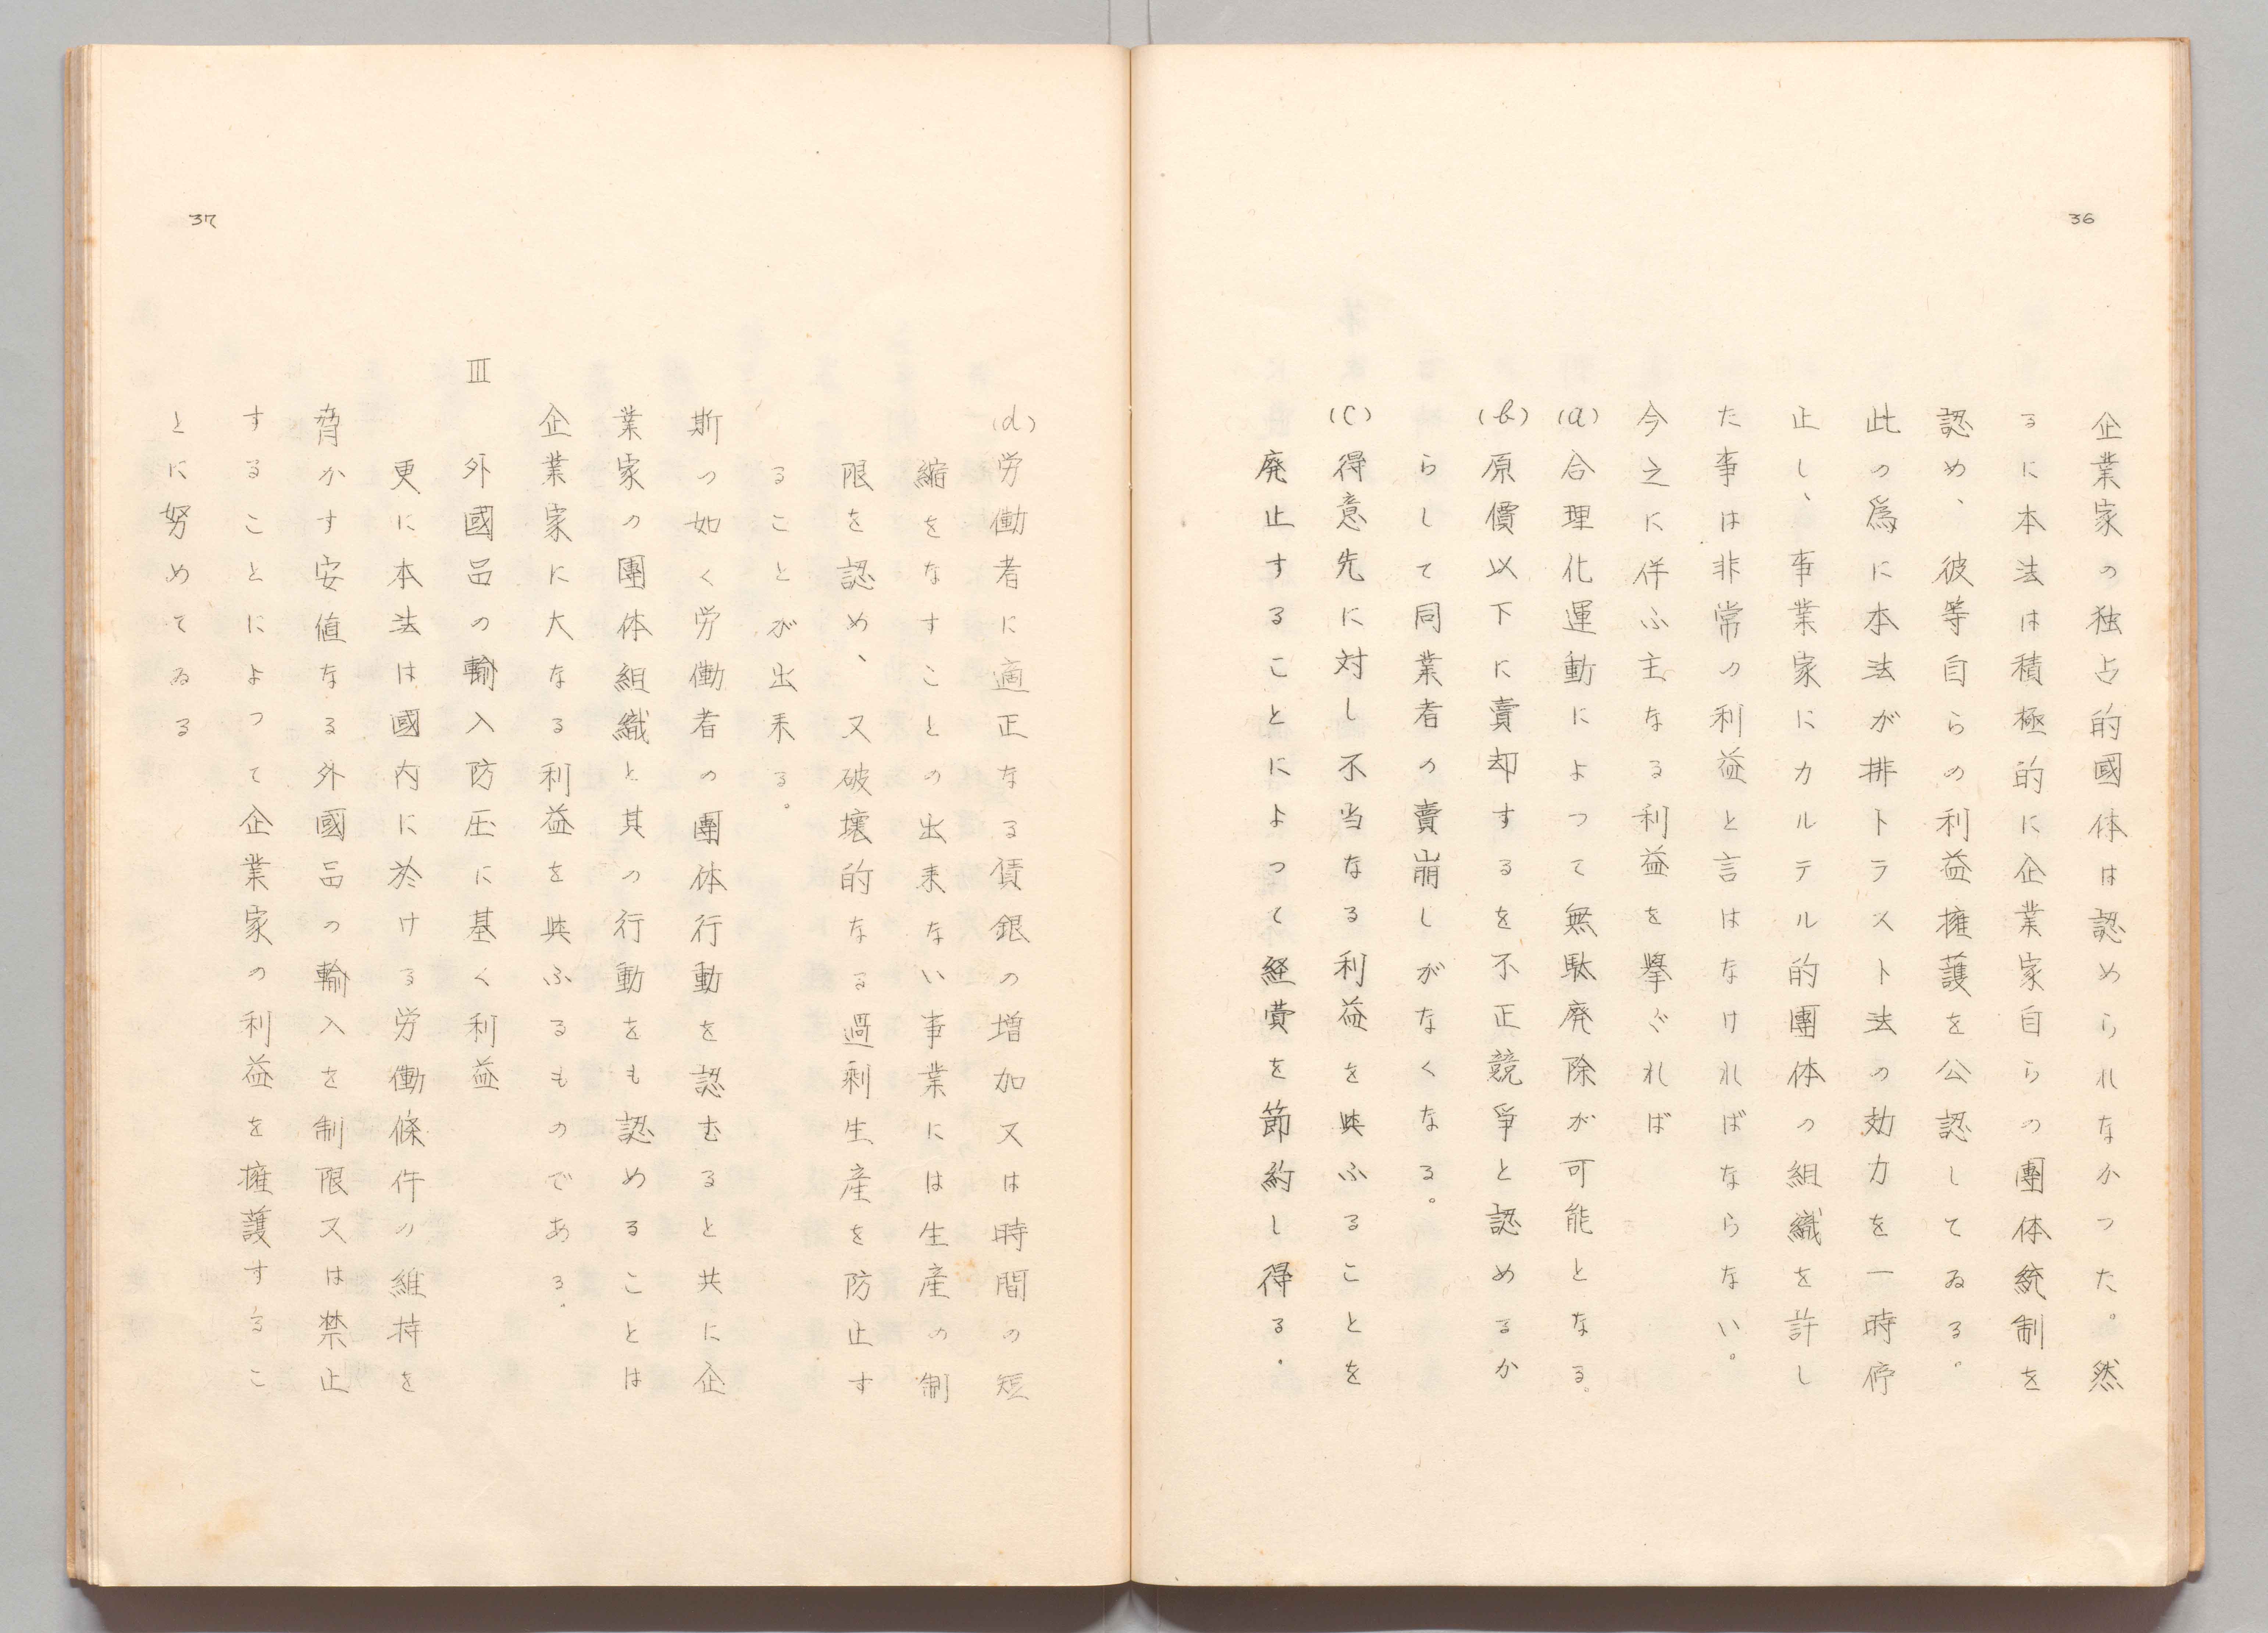 36
企業家の独占的國体は認められなかつた。然
るに本法は積極的に企業家自らの團体統制を
認め、彼等自らの利益擁護を公認してゐる。
此の爲に本法が排トラスト法の効力を一時停
止し、事業家にカルテル的團体の組織を許し
た事は非常の利益と言はなければならない。
今之に伴ふ主なる利益を擧ぐれば
(a)合理化運動によつて無駄廃除が可能となる。
(b)原價以下に賣却するを不正競爭と認めるか
らして同業者の賣崩しがなくなる。
(c)得意先に対し不当なる利益を與ふることを
廃止することによつて経費を節約し得る。
37
(d)労働者に適正なる賃銀の増加又は時間の短
縮をなすことの出来ない事業には生産の制
限を認め、又破壊的なる過剰生産を防止す
ることが出来る。
斯の如く労働者の團体行動を認むると共に企
業家の團体組織と其の行動をも認めることは
企業家に大なる利益を與ふるものである。
III 外國品の輸入防圧に基く利益
更に本法は國内に於ける労働條件の維持を
脅かす安値なる外國品の輸入を制限又は禁止
することによつて企業家の利益を擁護するこ
とに努めてゐる